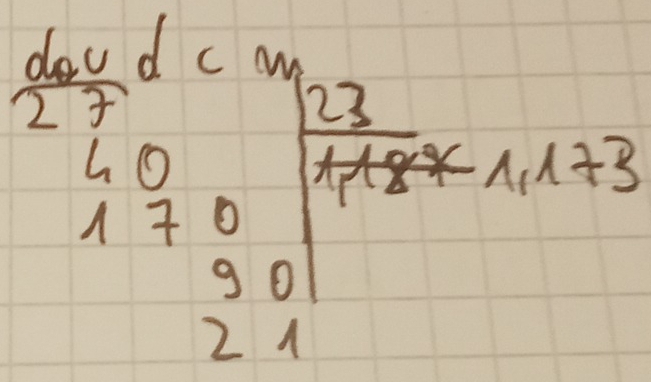 da u d c m
27 23
40 1,187 1,173
170
90
21